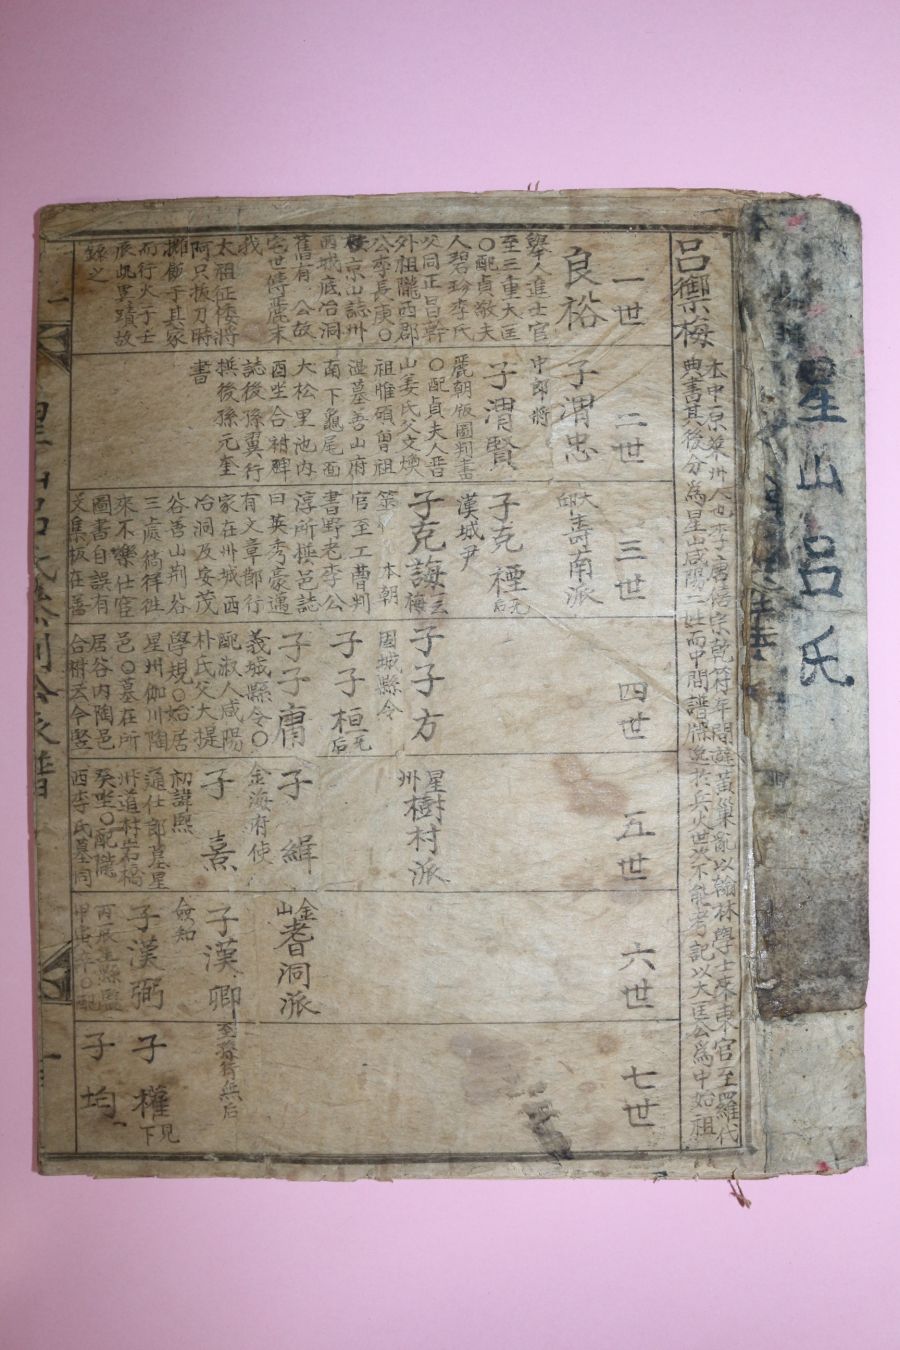 星山呂氏
呂御梅
本中原萊州人也李唐僖宗乾符年間避黃巢亂以翰林學士來東官至羅代
典書其後分爲星山咸陽二姓而中間譜牒逸於兵火世次不能考記以大匡公爲中始祖
一世
良裕
擧人進士官
至三重大匡
○配貞敬夫
人碧珍李氏
父同正昌幹
外祖隴西郡
公李長庚○
京山誌州
西城底冶洞
舊有公故
宅世傳麗末
我
太祖征倭將
阿只拔刀時
擁衛于其家
而行火于士
辰此單蹟故
錄之
二世
子渭忠
中郎將
子渭賢
麗朝版圖判書
○配貞夫人晋
山姜氏父文煥
祖惟碩曾祖
湜墓善山府
南下龜尾面
大松里池內
酉坐合祔碑
誌後孫翼行
撰後孫元奎
書
三世
大邱壽南派
子克禋无后
漢城尹
子克誨云梅
筮 本朝
官至工曹判
書野老李公
淳所撰邑誌
曰英秀豪邁
有文章節行
家在州城西
冶洞及安茂
谷善山荆谷
三處徜徉往
來不樂仕宦
圖書自誤有
文集板在善
四世
子子方
固城縣令
子子桓无后
子子膺
義城縣令○
配淑人咸陽
朴氏父大提
學規○始居
星州伽川陶
邑○墓在所
居谷內陶邑
合祔云今竪
五世
星州樹村派
子緝
金海府使
子熹
初諱熙
通仕郎墓星
州道村岩橋
癸坐○配隴
西李氏墓同
六世
金山耆洞派
子漢卿
僉知
子漢弼
七世
至孫行無后
子權見下
子均